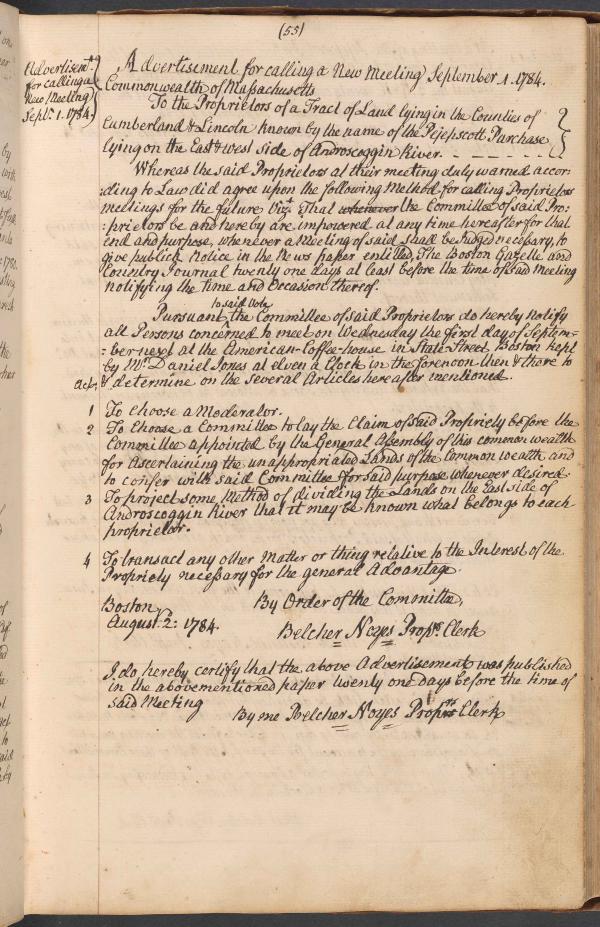 (55)
Advertisemt
for calling a
New Meeting
Sepbr. 1. 1784.
Advertisement for calling a New Meeting September 1. 1784.
Commonwealth of Massachusetts
To the Proprietors of a Tract of Land lying in the Counties of
Cumberland & Lincoln known by the name of the Pejepscott Purchase
lying on the East & west side of Androscoggin River.
Whereas the said Proprietors at their meeting duly warned accor:
:ding to Law did agree upon the following Method for calling Proprietors
meetings for the future Vizt. That whenever the Committee of said Pro:
:prietors be and hereby are impowered at any time hereafter for that
end and purpose, whenever a Meeting of said shall be Judged necessary, to
give publick Notice in the News paper entitled, The Boston Gazette and
Country Journal twenty one days at least before the time of said Meeting
notifying the time and Occasion thereof.
to said Vote
Pursuant, the Committee of said Proprietors do hereby Notify
all Persons concerned to meet on Wednesday the first day of Septem=
=ber next at the American-Coffee-house in State Street Boston kept
by Mr. Daniel Jones at elven a Clock in the forenoon then & there to
act,
& determine on the several Articles hereafter mentioned.
1 To Choose a Moderator.
2 To Choose a Committee to lay the Claim of said Propriety before the
Committee appointed by the General Assembly of this common wealth
for Ascertaining the unappropriated Lands of the Common wealth and
to confer with said Committee for said purpose whenever desired
3 To project some Method of dividing the Lands on the East side of
Androscoggin River that it may be known what belongs to each
proprietor.
4 To transact any other Matter or thing relative to the Interest of the
Propriety necessary for the general Advantage.
Boston By Order of the Committee,
August 2: 1784. Belcher Noyes Proprs Clerk
I do hereby certify that the above Advertisement was published
in the abovementioned paper twenty one Days before the time of
said Meeting
By me Belcher Noyes Proprs Clerk